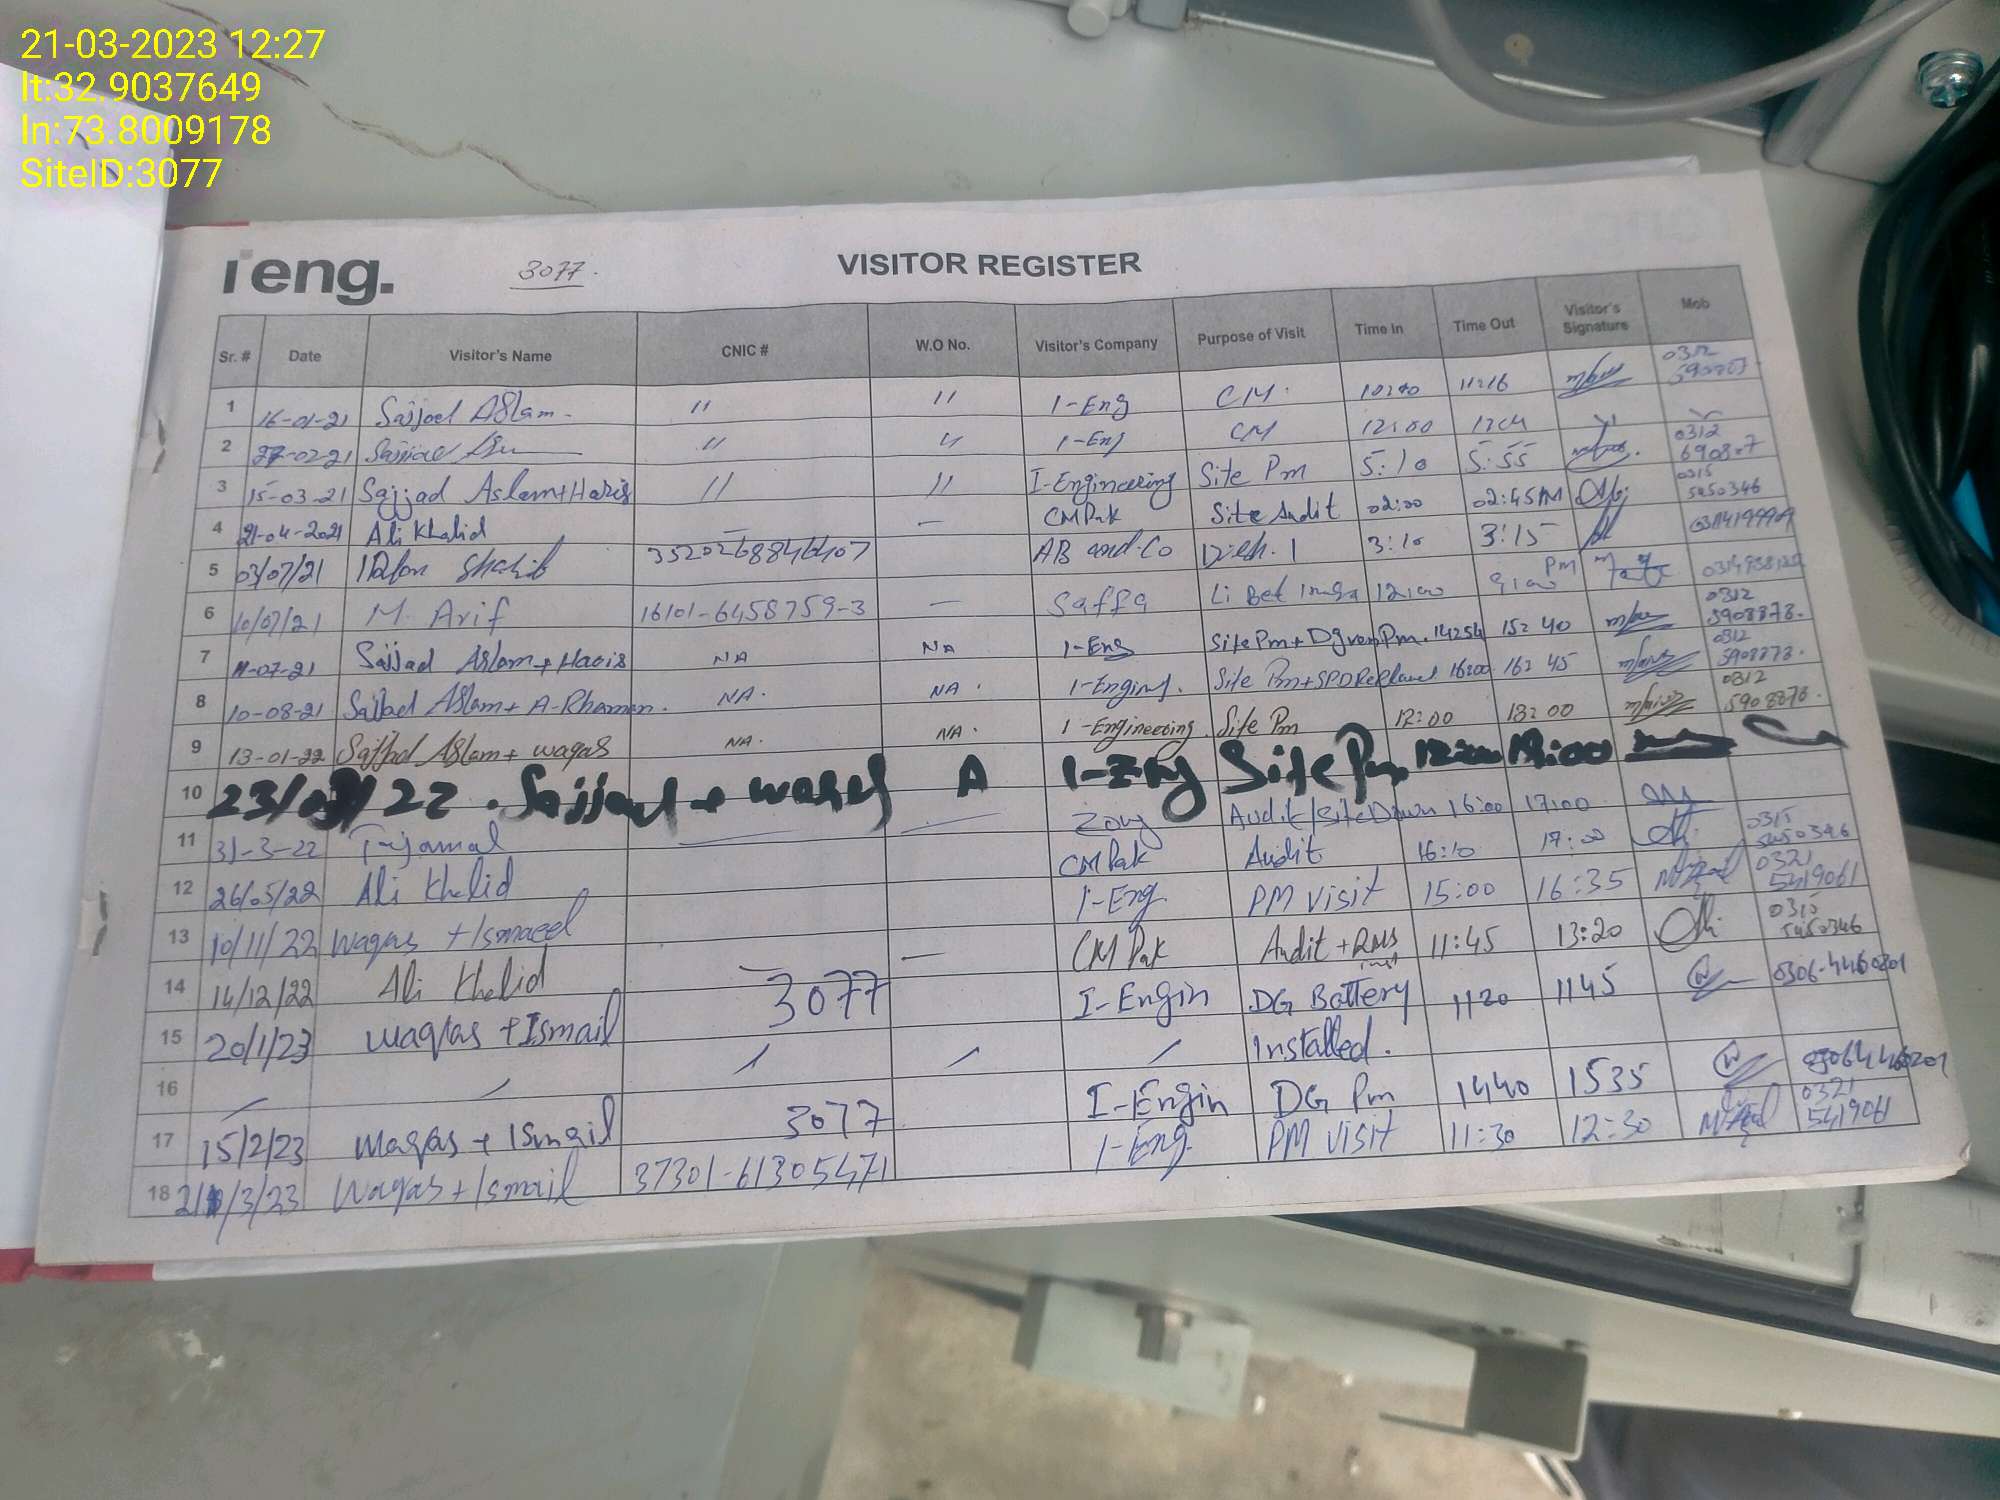 21-03-2023 12:27
lt:32.9037649
ln:73.8009178
SiteID:3077
i eng. 3077. VISITOR REGISTER
Sr. # Date Visitor's Name CNIC # W.O No. Visitor's Company Purpose of Visit Time In Time Out Visitor's Signature Mob
1 16-01-21 Sajjad Aslam. " " I-Eng CM. 11:16 0312
2 -02-21 " " I-Eng CM 12:00 0312
3 15-03-21 Sajjad Aslam+Haris " " I-Engineering Site Pm 5:10 5:55 0315 5450346
4 21-04-2021 Ali Khalid — — CMPak Site Audit 02:00 02:45PM
5 03/07/21 AB and Co 3:10 3:15
6 10/07/21 M. Arif 16101-6458759-3 — Saffa 12:00 9:00 PM 0312
7 11-07-21 Sajjad Aslam+Haris NA NA I-Eng Site Pm+ Pm. 15:40 5908878. 0312
8 10-08-21 Sajjad Aslam+A-Rhaman. NA. NA. I-Enging. Site Pm+SPD 16:00 16:45 5908878. 0312
9 13-01-22 Sajjad Aslam+waqas NA. NA. I-Engineering. Site Pm 12:00 13:00 5908878.
10 23/ /22. Sajjad + waqas A I-Eng Site Pm
11 31-3-22 — — Zong Audit/SiteDown 16:00 17:00
12 26/05/22 Ali Khalid CMPak Audit 16:10 17:00 0315 5450346
13 10/11/22 Waqas + Ismaeel I-Eng. PM Visit 15:00 16:35 0321 5419061
14 14/12/22 Ali Khalid — — CMPak Audit + RMS 11:45 13:20 0315 5450346
15 20/1/23 waqas + Ismail 3077 I-Engin DG Battery 1120 1145
16 / / / / / Installed.
17 15/2/23 waqas + Ismail 3077 I-Engin DG Pm 1440 1535
18 /3/23 Waqas + Ismail 37301-61305471 I-Eng. PM Visit 11:30 12:30 0321 5419061